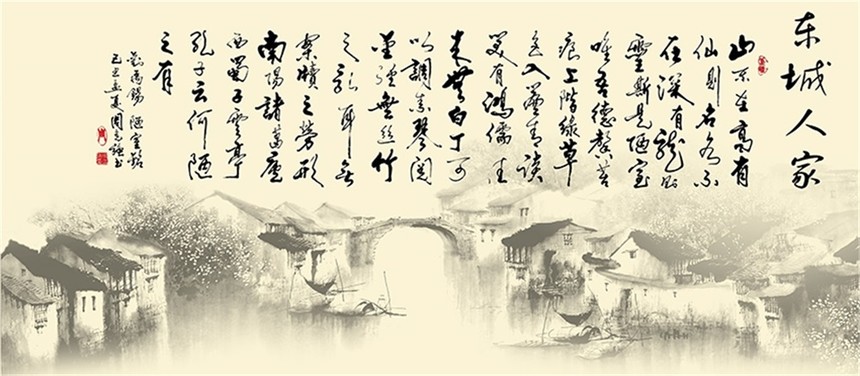 东城人家
山不在高有
仙則名水不
在深有龍則
靈斯是陋室
唯吾德馨苔
痕上階綠草
色入簾青談
笑有鴻儒往
來無白丁可
以調素琴閱
金經無絲竹
之亂耳無
案牘之勞形
南陽諸葛廬
西蜀子雲亭
孔子云何陋
之有
劉禹錫 陋室銘
己丑孟夏周書